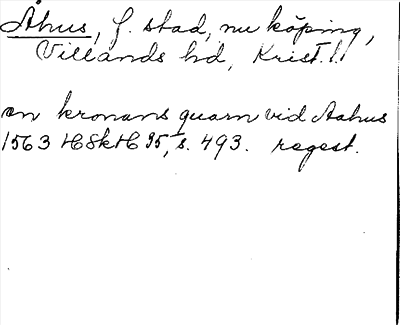 Åhus, f. stad, nu köping,
Villands hd, Krist. l.
en kronans quarn vid Aahus
1563 HSkH 35, s. 493. regest.